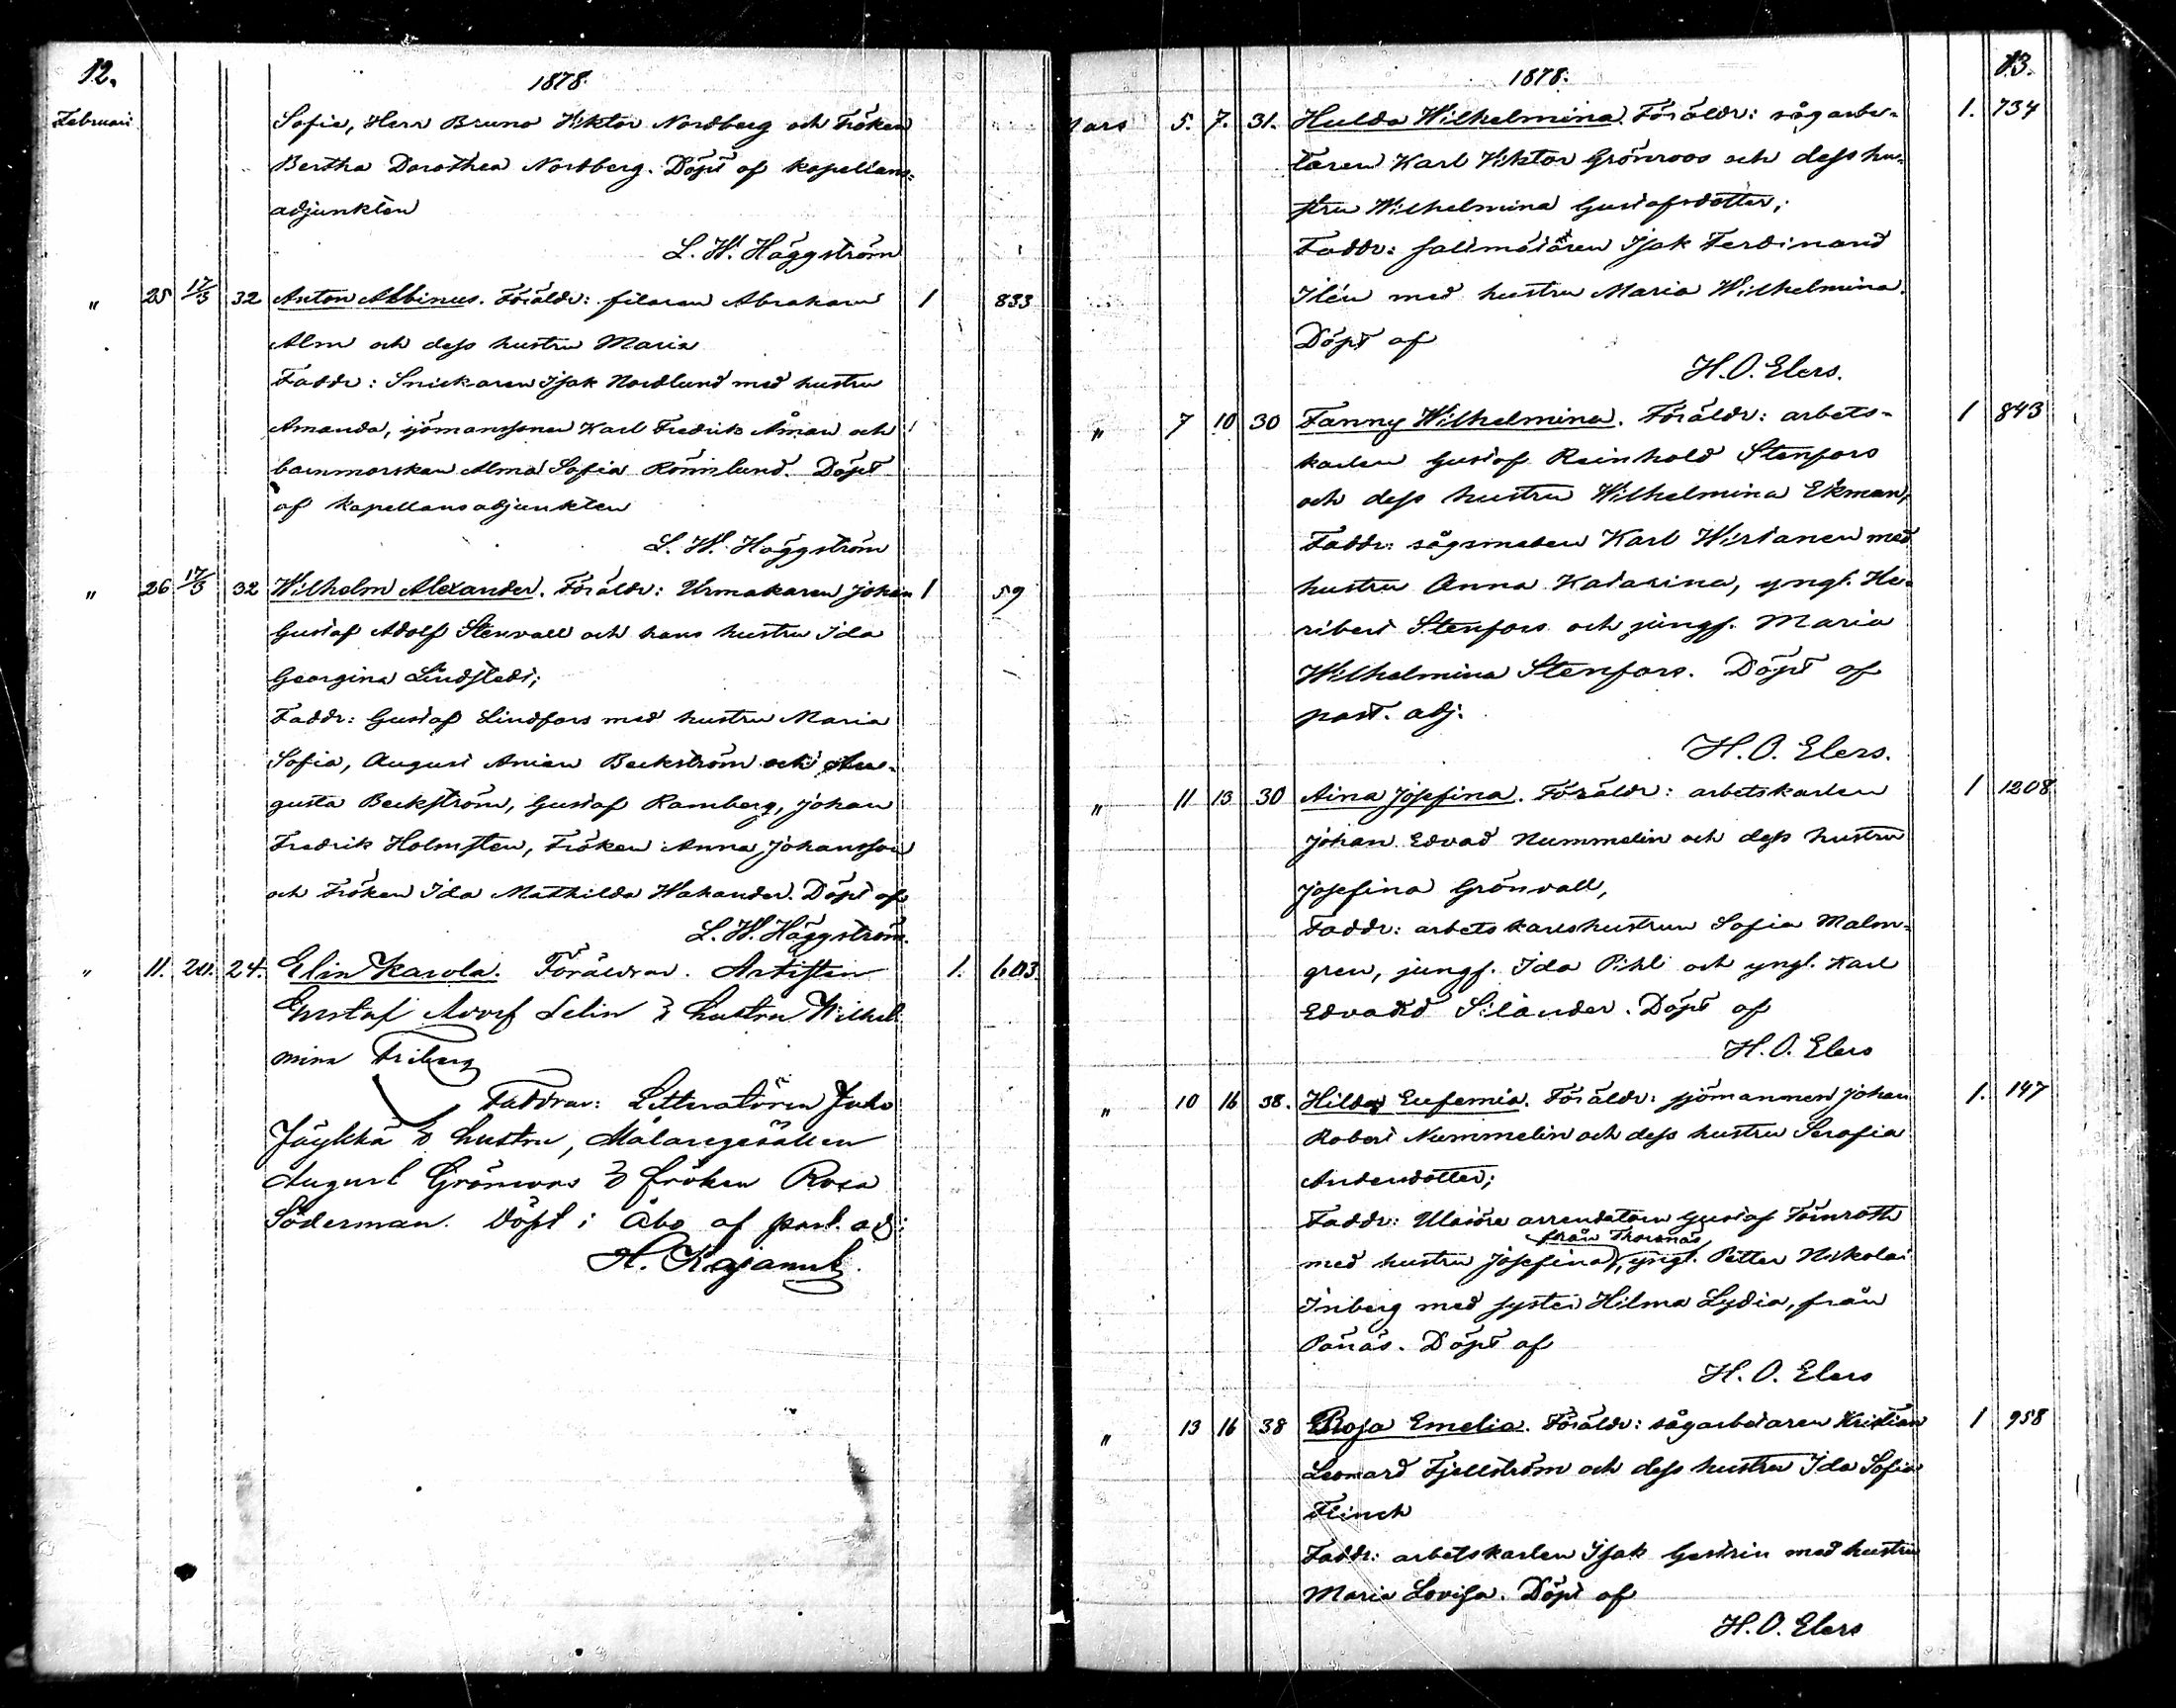 12.
1878.
Februari Sofia, Herr Bruno Viktor Nordberg och Fröken
Bertha Dorothea Nordberg. Döpt af kapellans-
adjunkten
L. W. Häggström
" 25 17/3 32 Anton Albinus. Föräldr: filaren Abraham 1 833
Alm och dess hustru Maria
Faddr: Snickaren Isak Nordlund med hustru
Amanda, sjömanssonen Karl Fredrik Åman och
barnmorskan Alma Sofia Rönnlund. Döpt
af kapellansadjunkten
L. W. Häggström
" 26 17/3 32 Wilhelm Alexander. Föräldr: Urmakaren Johan 1 59
Gustaf Adolf Stenvall och hans hustru Ida
Georgina Lindstedt;
Faddr: Gustaf Lindfors med hustru Maria
Sofia, August Anian Beckström och Au-
gusta Beckström, Gustaf Ramberg, Johan
Fredrik Holmsten, Fröken Anna Johansson
och Fröken Ida Mathilda Wahander. Döpt af
L. W. Häggström.
" 11. 20. 24. Elin Karola. Föräldrar. Artisten 1. 603
Gustaf Adolf Selin & hustru Wilhel
mina Friberg
Faddrar: Litteratören Juho
Jäykkä & hustru, Målaregesällen
August Grönroos & fröken Rosa
Söderman. Döpt i Åbo af past. adj:
H. Kajanus.
13.
1878.
Mars 5. 7. 31. Hulda Wilhelmina. Föräldr: sågarbe- 1. 734
taren Karl Viktor Grönroos och dess hu-
stru Wilhelmina Gustafsdotter;
Faddr: salimätaren Isak Ferdinand
Ilén med hustru Maria Wilhelmina.
Döpt af
H. O. Elers.
" 7 10 30 Fanny Wilhelmina. Föräldr: arbets- 1 843
karlen Gustaf Reinhold Stenfors
och dess hustru Wilhelmina Ekman,
Faddr: sågsmeden Karl Wirtanen med
hustru Anna Katarina, yngl. He-
ribert Stenfors och jungf. Maria
Wilhelmina Stenfors. Döpt af
past. adj.
H. O. Elers.
" 11 13 30 Aina Josefina. Föräldr: arbetskarlen 1 1208
Johan Edvad Nummelin och dess hustru
Josefina Grönvall,
Faddr: arbetskarlshustrun Sofia Malm-
gren, jungf. Ida Pihl och yngl. Karl
Edvard Silander. Döpt af
H. O. Elers
" 10 16 38. Hilda Eufemia. Föräldr: sjömannen Johan 1. 147
Robert Nummelin och dess hustru Serafia
Andersdotter;
Faddr: arrendatorn Gustaf Törnroth
från Thorsnäs
med hustru Josefina, yngl. Petter Nikolai
Inberg med syster Hilma Lydia, från
Pänäs. Döpt af
H. O. Elers
" 13 16 38 Rosa Emelia. Föräldr: sågarbetaren Kristian 1 958
Leonard Fjellström och dess hustru Ida Sofia
Flinck
Faddr: arbetskarlen Isak Gestrin med hustru
Maria Lovisa. Döpt af
H. O. Elers